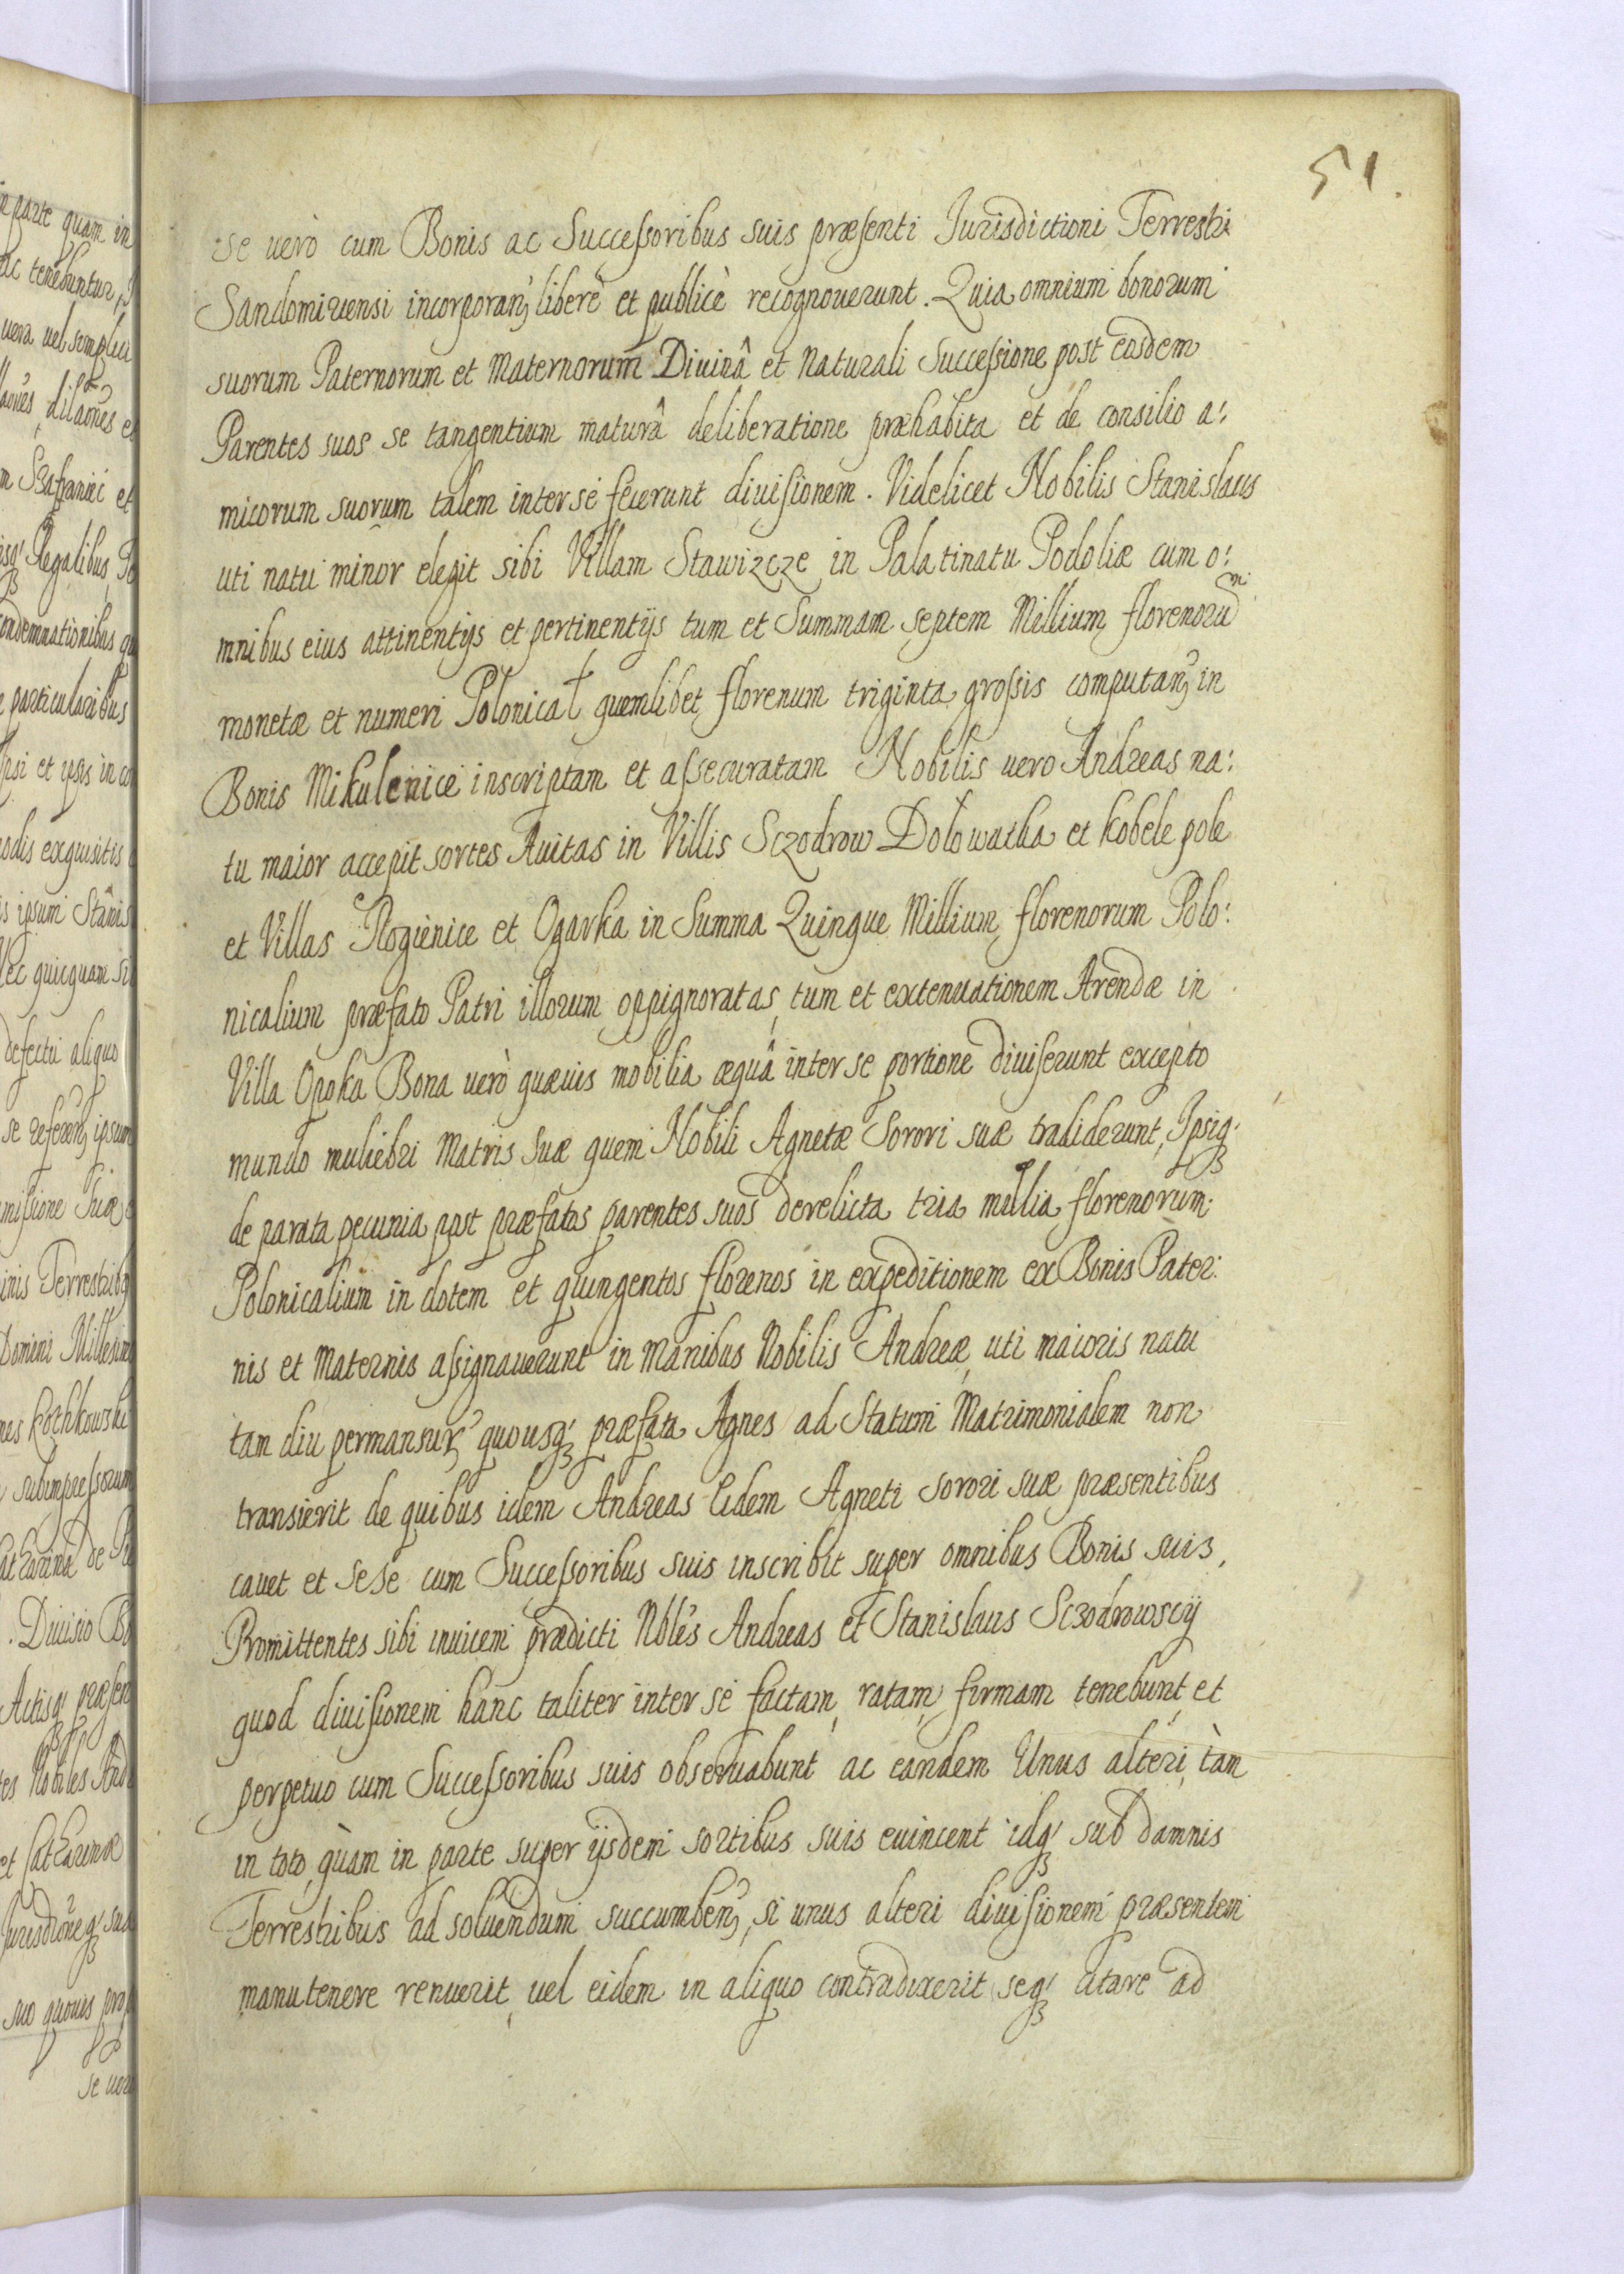 51.
se uerò cum Bonis ac Successoribus suis præsenti Jurisdictioni Terrestri
Sandomiriensi incorporanʒ liberè et publicè recognouerunt. Quia omnium bonorum
suorum Paternorum et Maternorum Diuinâ et Naturali Successione post eosdem
Parentes suos se tangentium maturâ deliberatione præhabita et de consilio a:
micorum suorum talem inter se fecerunt diuisionem. Videlicet Nobilis Stanislaus
uti natu minor elegit sibi Villam Stawizcze in Palatinatu Podoliæ cum o:
mnibus eius attinentijs et pertinentijs tum et Summam septem Millium florenorum
monetæ et numeri Polonical quemlibet florenum triginta grossis computanʒ in
Bonis Mikulenice inscriptam et assecuratam Nobilis uero Andreas na:
tu maior accepit sortes Auitas in Villis Sczodrow Dolowatka et Kobele pole
et Villas Rogienice et Ogarka in Summa Quinque Millium florenorum Polo:
nicalium præfato Patri illorum oppignoratas, tum et extenuationem Arendæ in
Villa Opoka Bona uerò quæuis mobilia æquâ inter se portione diuiserunt excepto
mundo muliebri Matris suæ quem Nobili Agnetæ Sorori suæ tradiderunt, Ipsiq'ʒ
de parata pecunia post præfatos parentes suos derelicta tria millia florenorum
Polonicalium in dotem et quingentos florenos in expeditionem ex Bonis Pater:
nis et Maternis assignauerunt in Manibus Nobilis Andreæ, uti maioris natu
tam diu permansurʒ quousq'ʒ præfata Agnes ad Statum Matrimonialem non
transierit de quibus idem Andreas Eidem Agneti sorori suæ præsentibus
cauet et sese cum Successoribus suis inscribit super omnibus Bonis suis,
Promittentes sibi inuicem prædicti Nbles Andreas et Stanislaus Sczodrowscÿ
quod diuisionem hanc taliter inter se factam, ratam, firmam tenebunt, et
perpetuo cum Successoribus suis obseruabunt ac eandem Unus alteri, tàm
in toto, quàm in parte super ijsdem sortibus suis euincent idq'ʒ sub damnis
Terrestribus ad soluendum succumbenʒ, si unus alteri diuisionem præsentem
manutenere renuerit, uel eidem in aliquo contradixerit seq'ʒ citare ad